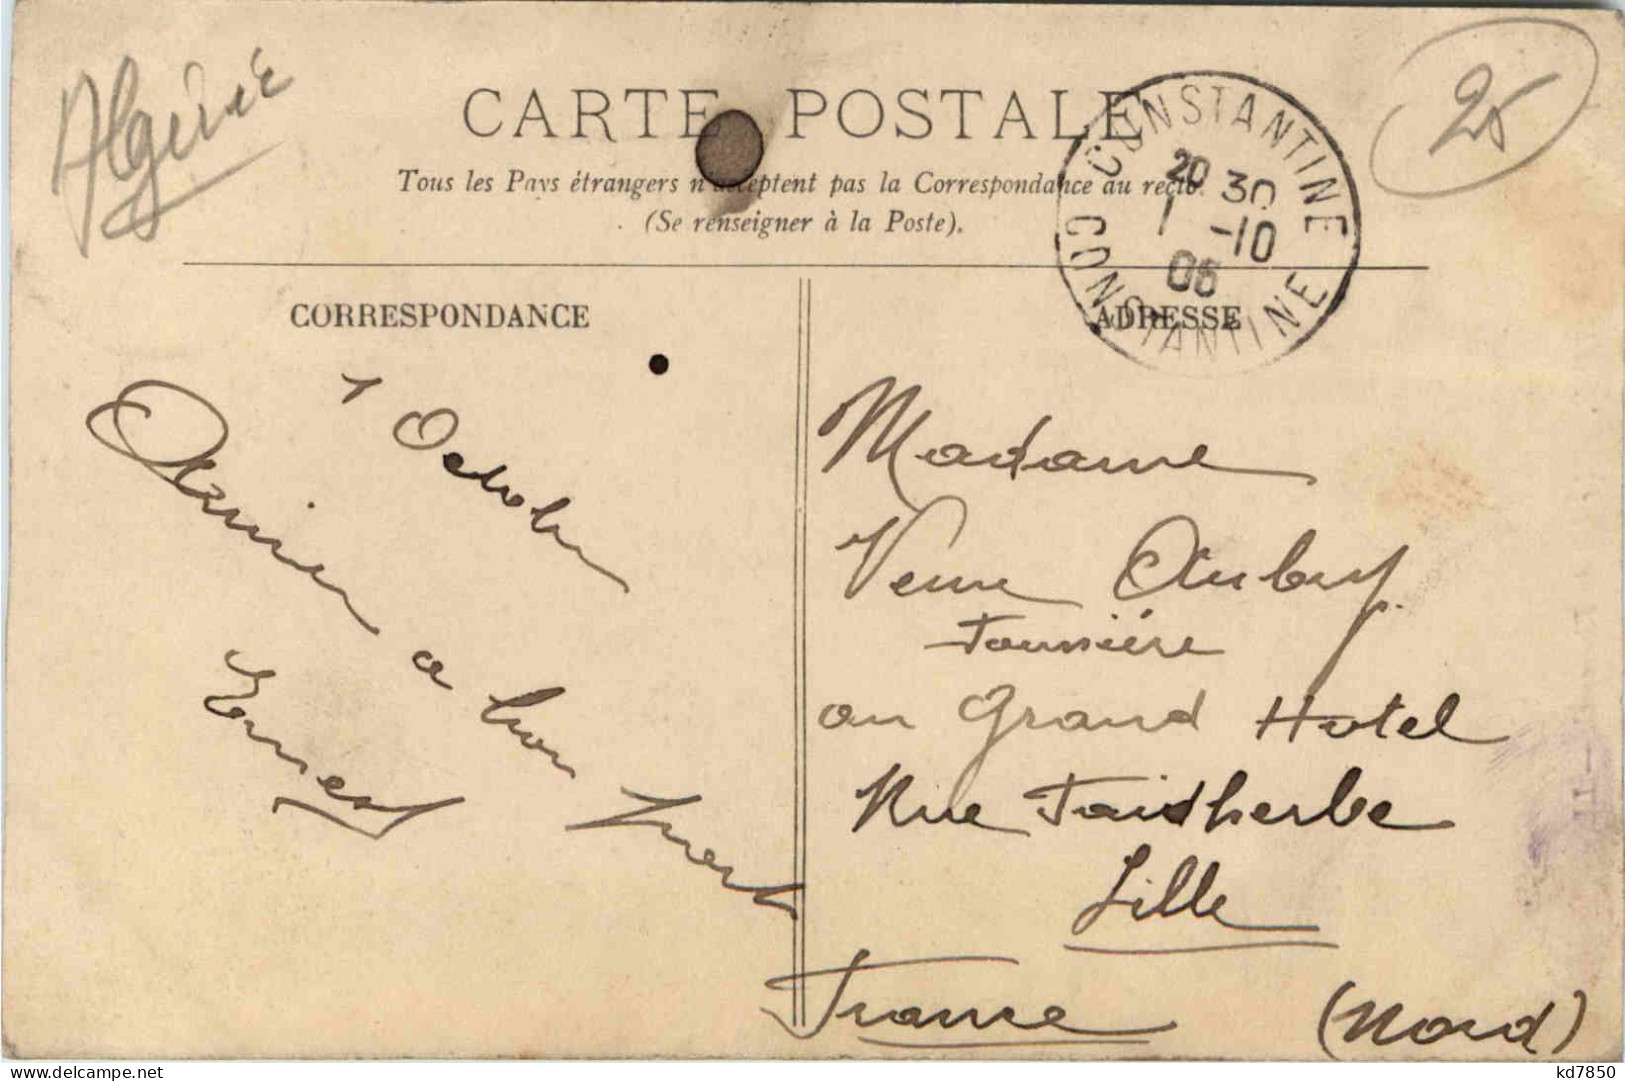 Algérie
25
CARTE POSTALE
Tous les Pays étrangers n'acceptent pas la Correspondance au recto.
(Se renseigner à la Poste).
CONSTANTINE
20 30
1 -10
06
CONSTANTINE
CORRESPONDANCE
ADRESSE
1 Octobre
Arrivé à bon port
Ernest
Madame
Veuve Aubry
au Grand Hotel
Rue Faidherbe
Lille
France (Nord)
kd7850